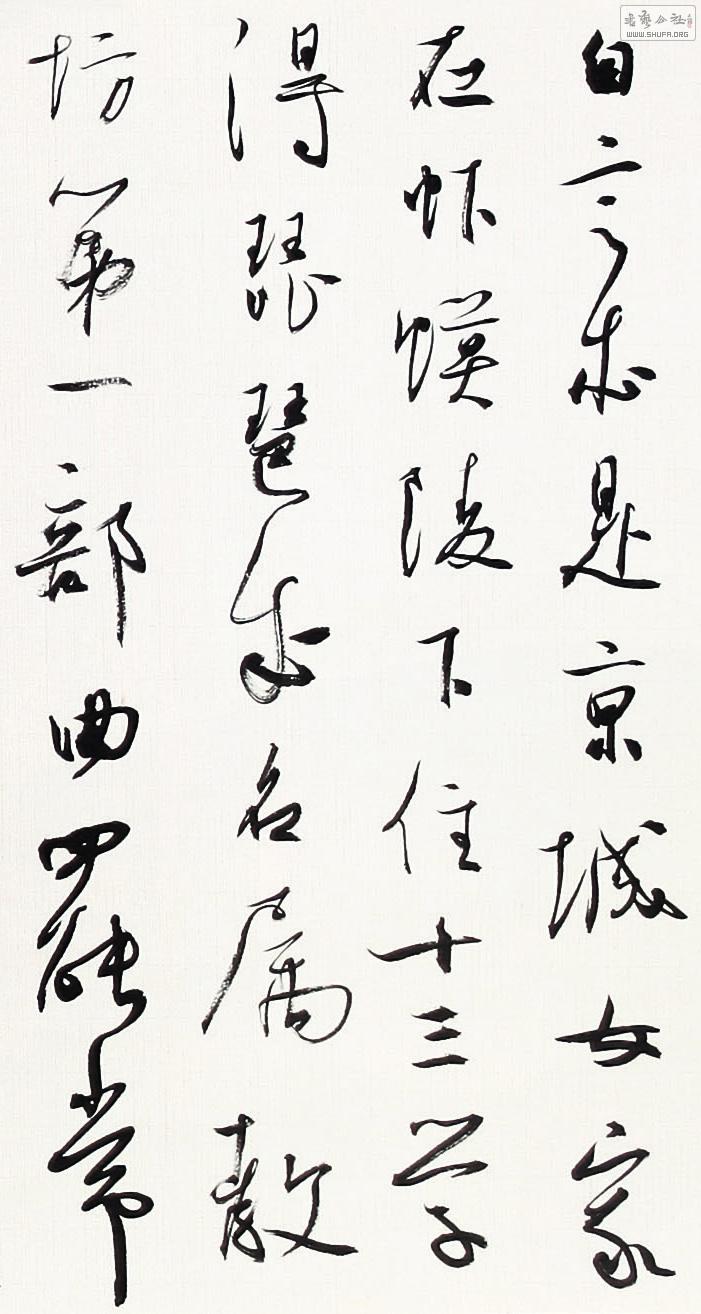 自言本是京城女家
在虾蟆陵下住十三学
得琵琶成名属教
坊第一部曲罷常
書藝公社
WWW.SHUFA.ORG